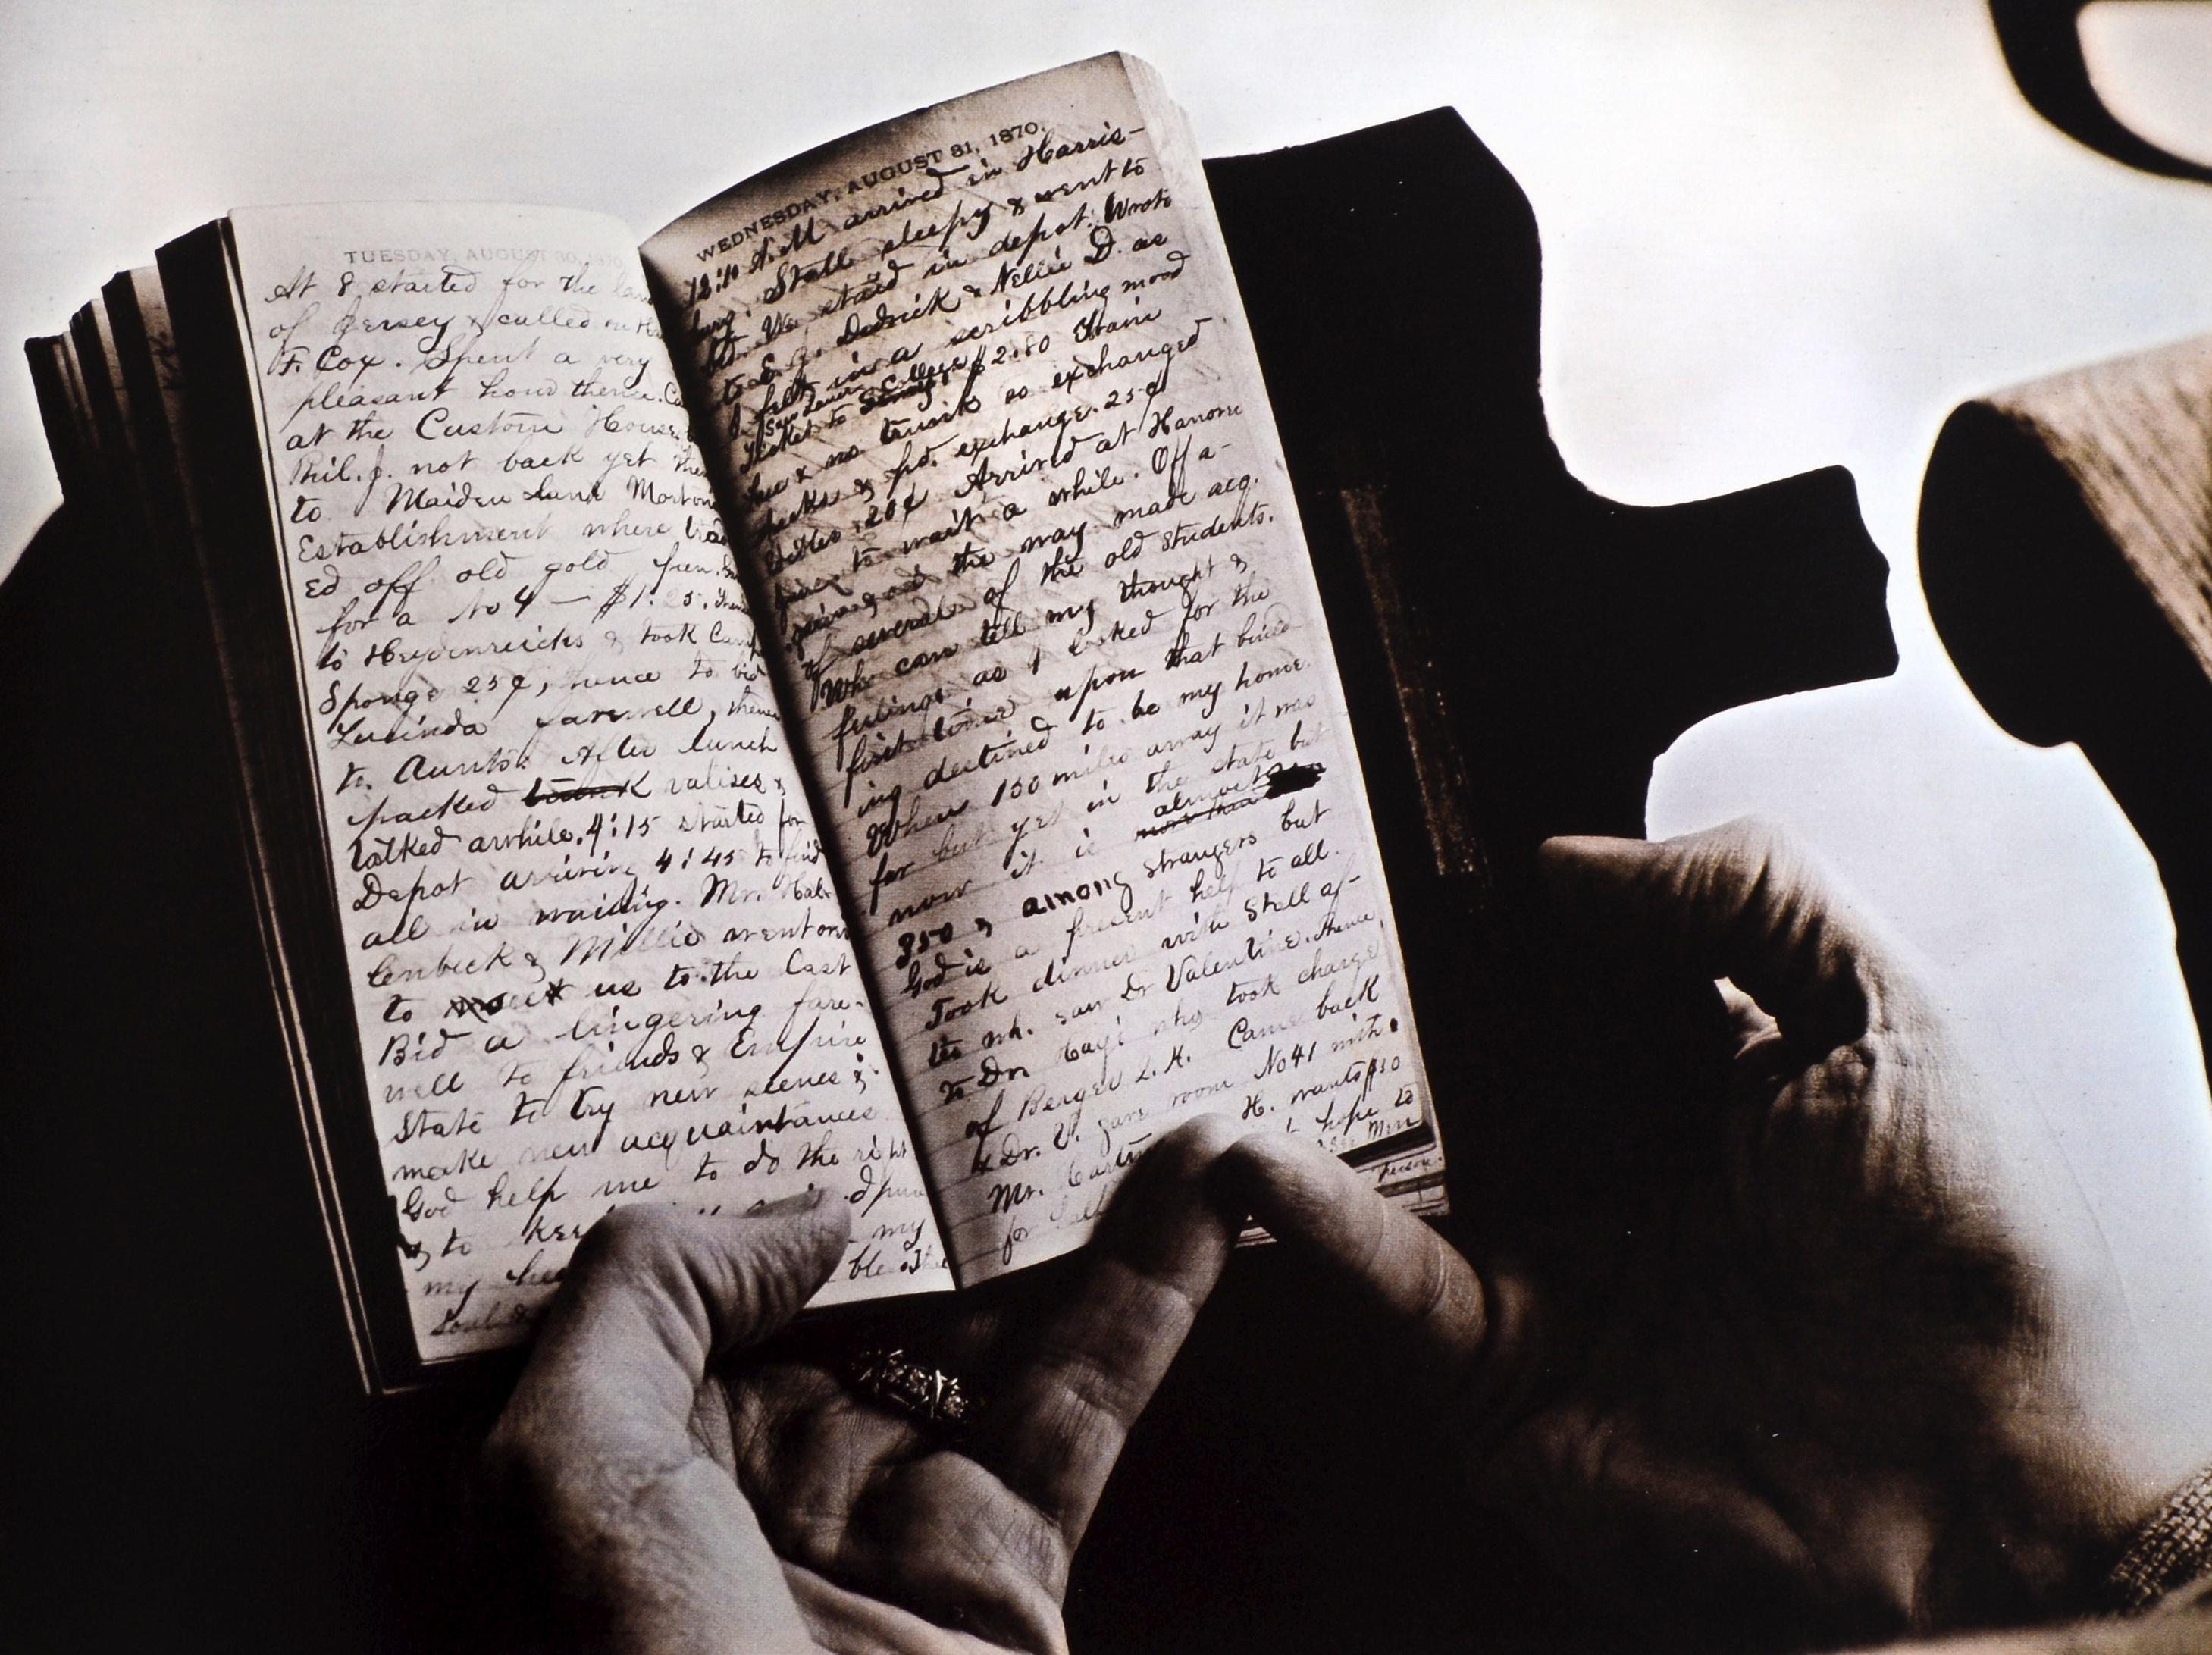 TUESDAY, AUGUST 30, 1870.
At 8 started for the
of Jersey & called on
F. Cox. Spent a very
pleasant hour there.
at the Custom House,
Phil. J. not back yet
to Maiden Lane Morton
Establishment where trad
ed off old gold pen
for a No 4 — $1.25.
to Heydenreichs & took
Sponge 25¢, thence to bid
Lucinda farewell, thence
to Aunts. After lunch
packed trunk valises &
talked awhile. 4:15 started for
Depot arriving 4:45 to find
all in waiting. Mr. Hal-
lenbeck & Millie went over
to meet us to the Cast
Bid a lingering fare-
well to friends & Empire
State to try new scenes &
make new acquaintances
God help me to do the right
& to
my
my
Soul &
WEDNESDAY, AUGUST 31, 1870.
12:10 A.M arrived in Harris-
burg. Stall sleepy & went to
bed. We staid in depot. Wrote
to E. G. Dedrick & Nellie D. as
I felt in a scribbling mood
Ticket to College $2.80 Train
late & no trunk so exchanged
checks & pd. exchange. 25¢
20¢ Arrived at Hanover
to wait a while. Off a-
gain & on the way made acq.
of several of the old students.
Who can tell my thought &
feelings as I looked for the
first time upon that build-
ing destined to be my home.
When 150 miles away it was
far but yet in the state but
now it is almost
more than
350 & among strangers but
God is a present help to all.
Took dinner with Stall af-
ter wh. saw Dr Valentine. thence
to Dr. Hay's who took charge
of Berger L. H. Came back
& Dr. V. gave room No 41 with
Mr. H. wants $10
for hope to